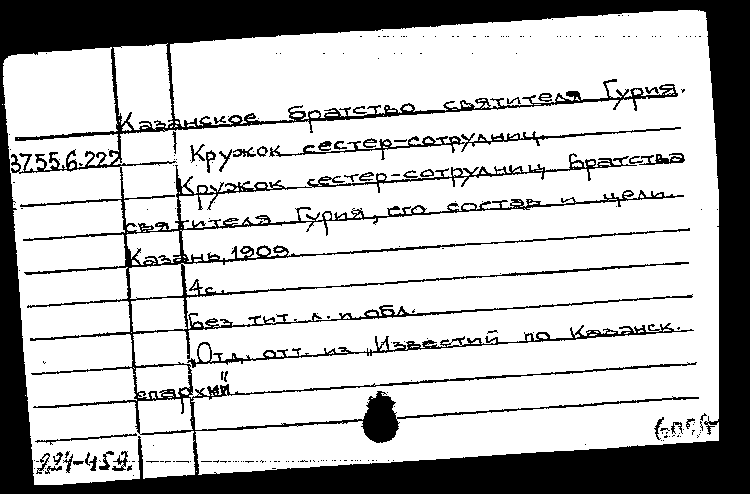 Казанское братство святителя Гурия.
37.55.6.222 Кружок сестер-сотрудниц.
Кружок сестер-сотрудниц Братства
святителя Гурия, его состав и цели.
Казань, 1909.
4с.
Без тит. л. и обл.
„Отд. отт. из „Известий по Казанск.
епархии".
224-459.